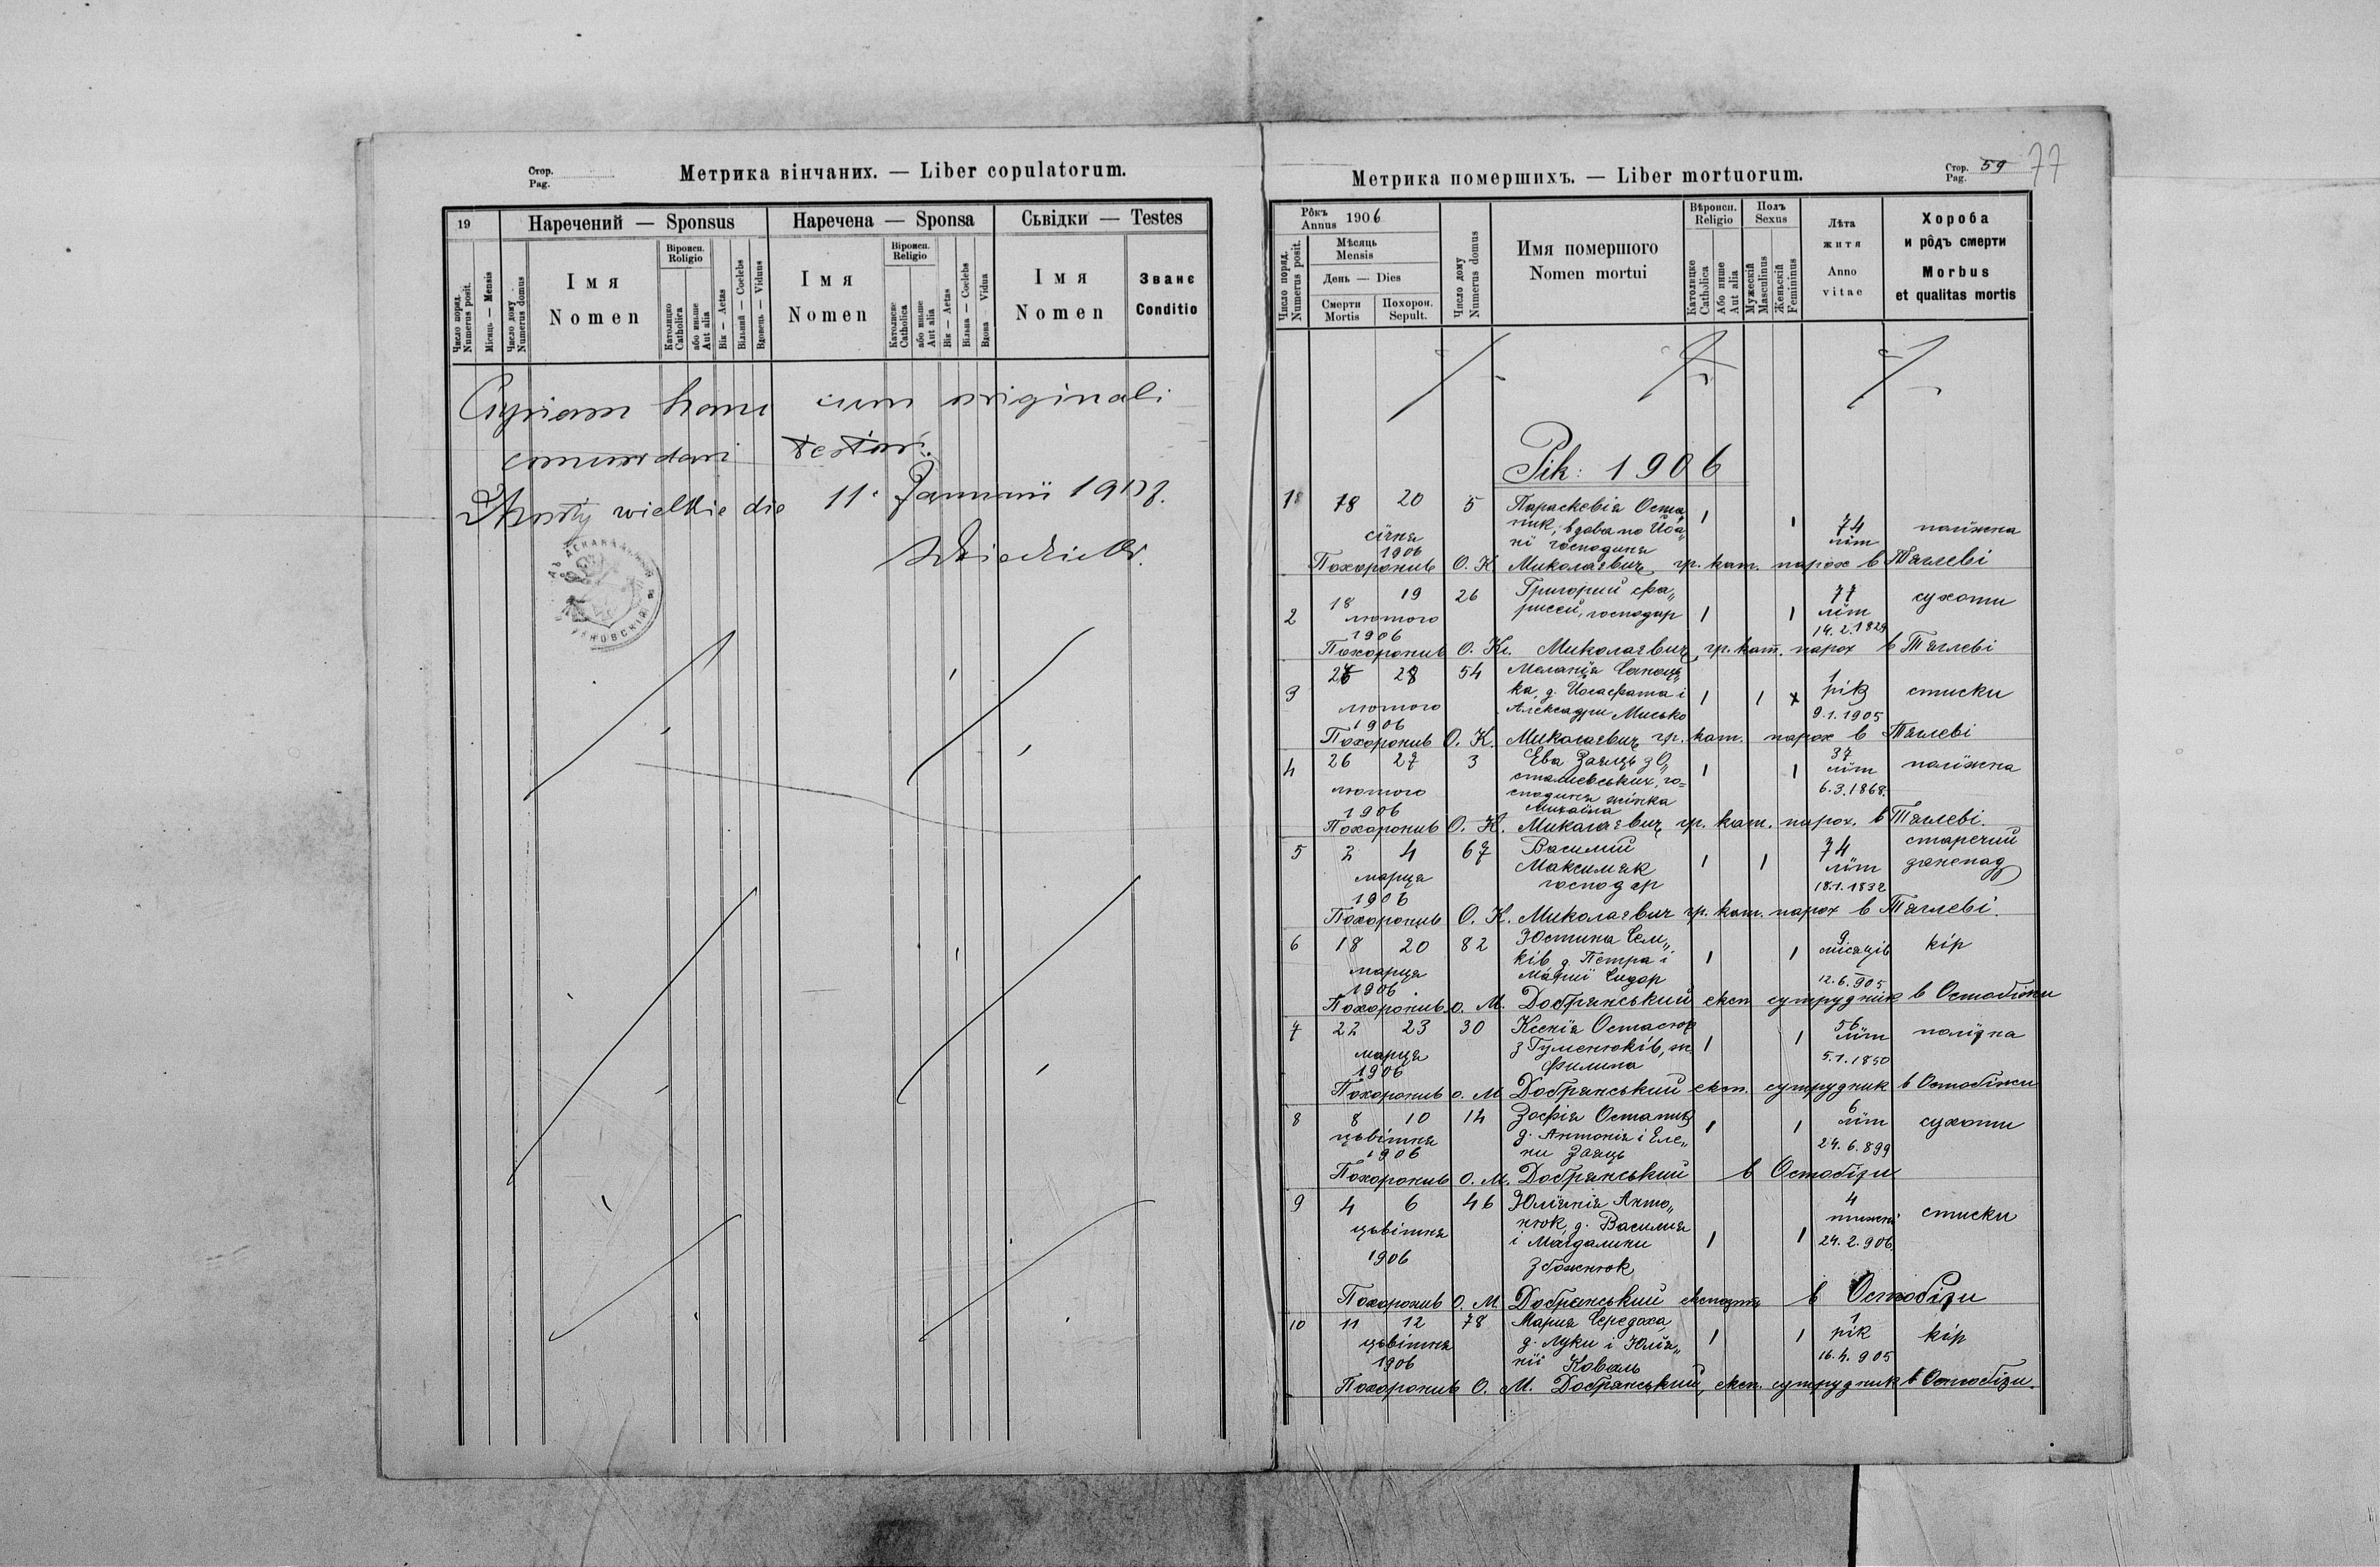 Стор.
Pag.
Метрика вінчаних. — Liber copulatorum.
19
Наречений — Sponsus
Наречена — Sponsa
Сьвідки — Testes
Число поряд.
Numerus posit.
Місяць — Mensis
Число дому
Numerus domus
Імя
Nomen
Віроисп.
Roligio
Католицко
Catholica
або иньше
Aut alia
Вік — Aetas
Вільний — Coelebs
Вдовець — Viduus
Імя
Nomen
Віроисп.
Religio
Католиске
Catholica
або иньше
Aut alia
Вік — Aetas
Вільна — Coelebs
Вдова Vidua
Імя
Nomen
Званє
Conditio
cum originali
testor.
wielkie die 11. Januarii 1907.
Метрика помершихъ. — Liber mortuorum.
Стор.
Pag.
59
77
Рôкъ
Annus
1906
Число поряд.
Numerus posit.
Мѣсяць
Mensis
День — Dies
Смерти
Mortis
Похорон.
Sepult.
Число дому
Numerus domus
Имя помершого
Nomen mortui
Вѣроисп.
Religio
Католицке
Catholica
Або инше
Aut alia
Полъ
Sexus
Мужескій
Masculinus
Женьскій
Femininus
Лѣта
житя
Anno
vitae
Хороба
и рôдъ смерти
Morbus
et qualitas mortis
Рік: 1906
18 20 5 Параскевія Оста„
пик, вдова по Йоа„
нї господиня
1 1 74
лїт
сїчня
1906
Похоронив О. К. Миколаєвич гр. кат. парох в Тяглеві
2 18 19 26 Григорий Фа„
рисей, господар
1 1 77
лїт
14.2.1829
сухоти
лютого
1906
Похоронив О. К. Миколаєвич гр. кат. парох в Тяглеві
3 28 54 Меланїя
ка, д. Йосафата і
Александри Мисько
1 1 x 1
рік
9.1.1905
стиски
лютого
1906
Похоронив О. К. Миколаєвич гр. кат. парох в Тяглеві
4 26 27 3 Ева Заяць з О„
сташевських, го=
сподиня жінка
Михайла
1 1 37
лїт
6.3.1868.
лютого
1906
Похоронив О. К. Миколаєвич гр. кат. парох. в Тяглеві.
5 2 4 67 Василий
Максимяк
господар
1 1 74
лїт
18.1.1832
старечий
марця
1906
Похоронив О. К. Миколаєвич гр. кат. парох в Тяглеві.
6 18 20 82 Юстина Сем„
ків д. Петра і
Мариї Сидор
1 1 9
місяцїв
12.6.905
кір
марця
1906
Похоронив о. М. Добрянський експ сотрудник в Остобіжи
7 22 23 30 Ксенїя Остасюк
з Гуменюків, ж.
Филипа
1 1 56
лїт
5.1.1850
марця
1906
Похоронив о. М Добрянський експ. сотрудник в Остобіжи
8 8 10 14 Зофія Остапик
д. Антонія і Еле„
ни Заяць
1 1 6
лїт
24.6.899
сухоти
цьвітня
1906
Похоронив О. М. Добрянський в Остобіжи
9 4 6 46 Юлїянїя Анто„
нюк, д. Василия
і Магдалини
Збожнюк
1 1 4
тижнї
24.2.906.
стиски
цьвітня
1906
Похоронив О. М. Добрянський в Остобіжи
10 11 12 78 Мария Середоха
д. Луки і Юлїя„
нїї Коваль
1 1 1
рік
16.4.905
кір
цьвітня
1906
Похоронив О. М. Добрянський, експ. сотрудник в Остобіжи.